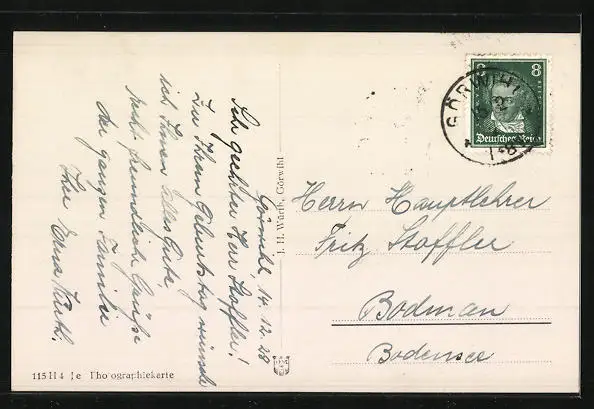 Görwihl, 14.12.28
Sehr geehrter Herr Stoffler!
Zu Ihrem Geburtstag wünsche
ich Ihnen alles Gute.
Recht freundliche Grüße
der ganzen Familie
Ihre Erna Würth.
J. H. Würth, Görwihl
115114 Je Photographiekarte
8 8
Deutsches Reich
GÖRWIHL
Herrn Hauptlehrer
Fritz Stoffler
Bodman
Bodensee